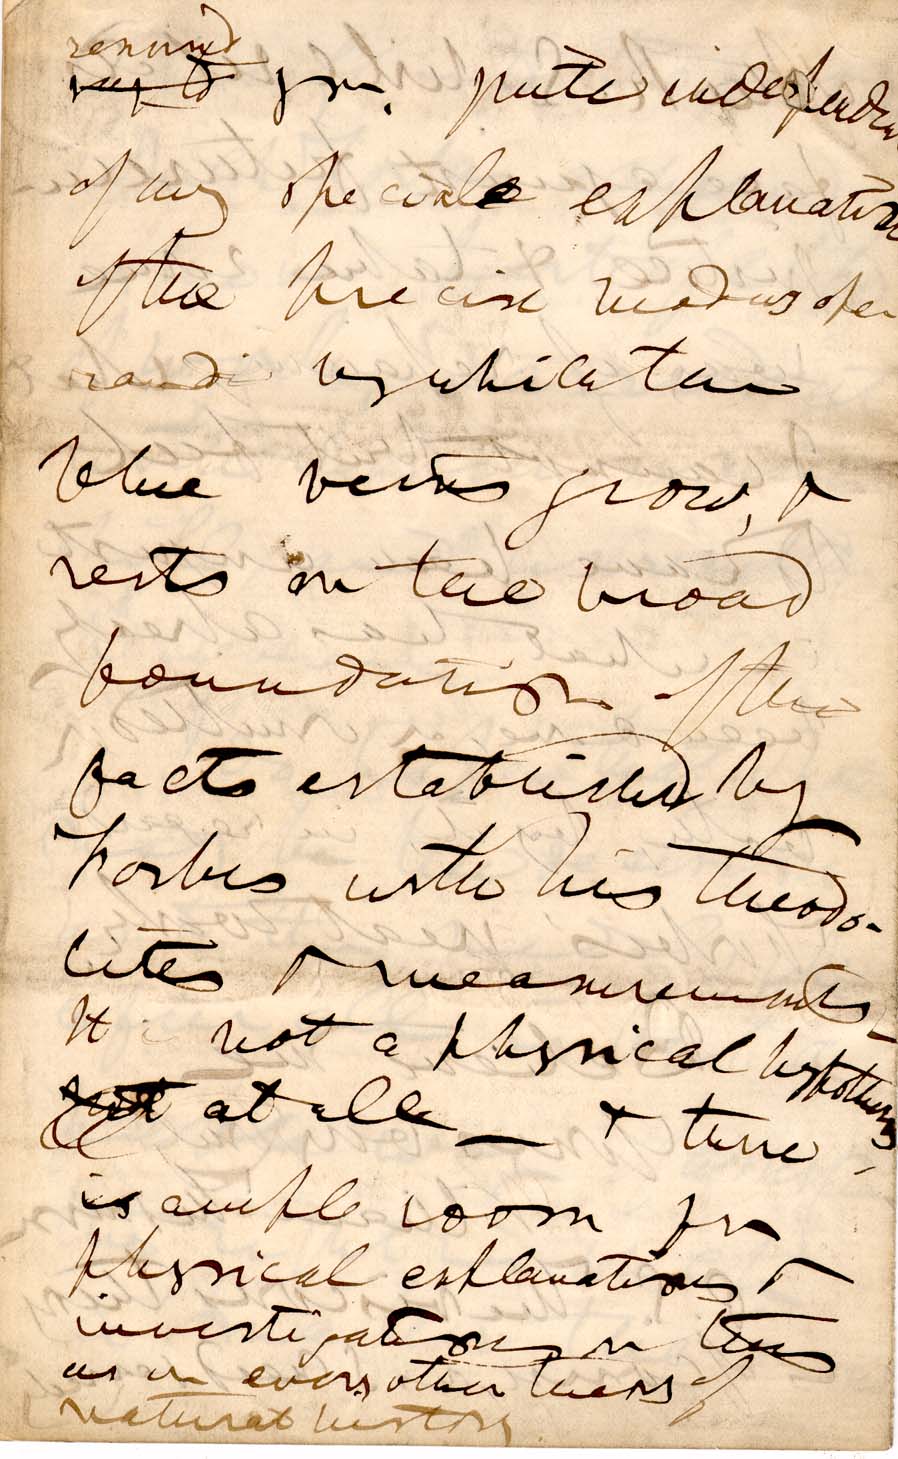 remind
you. quite independen
of any special explanation
of the precise modus ope
randi by which the
blue veins grow, &
rests on the broad
foundation of the
facts established by
Forbes with his theodo-
lites & measurements_
It is not a physical hypothesis
at all_ & there
is ample room for
physical explanations &
investigations on this
as on every other theory of
natural history